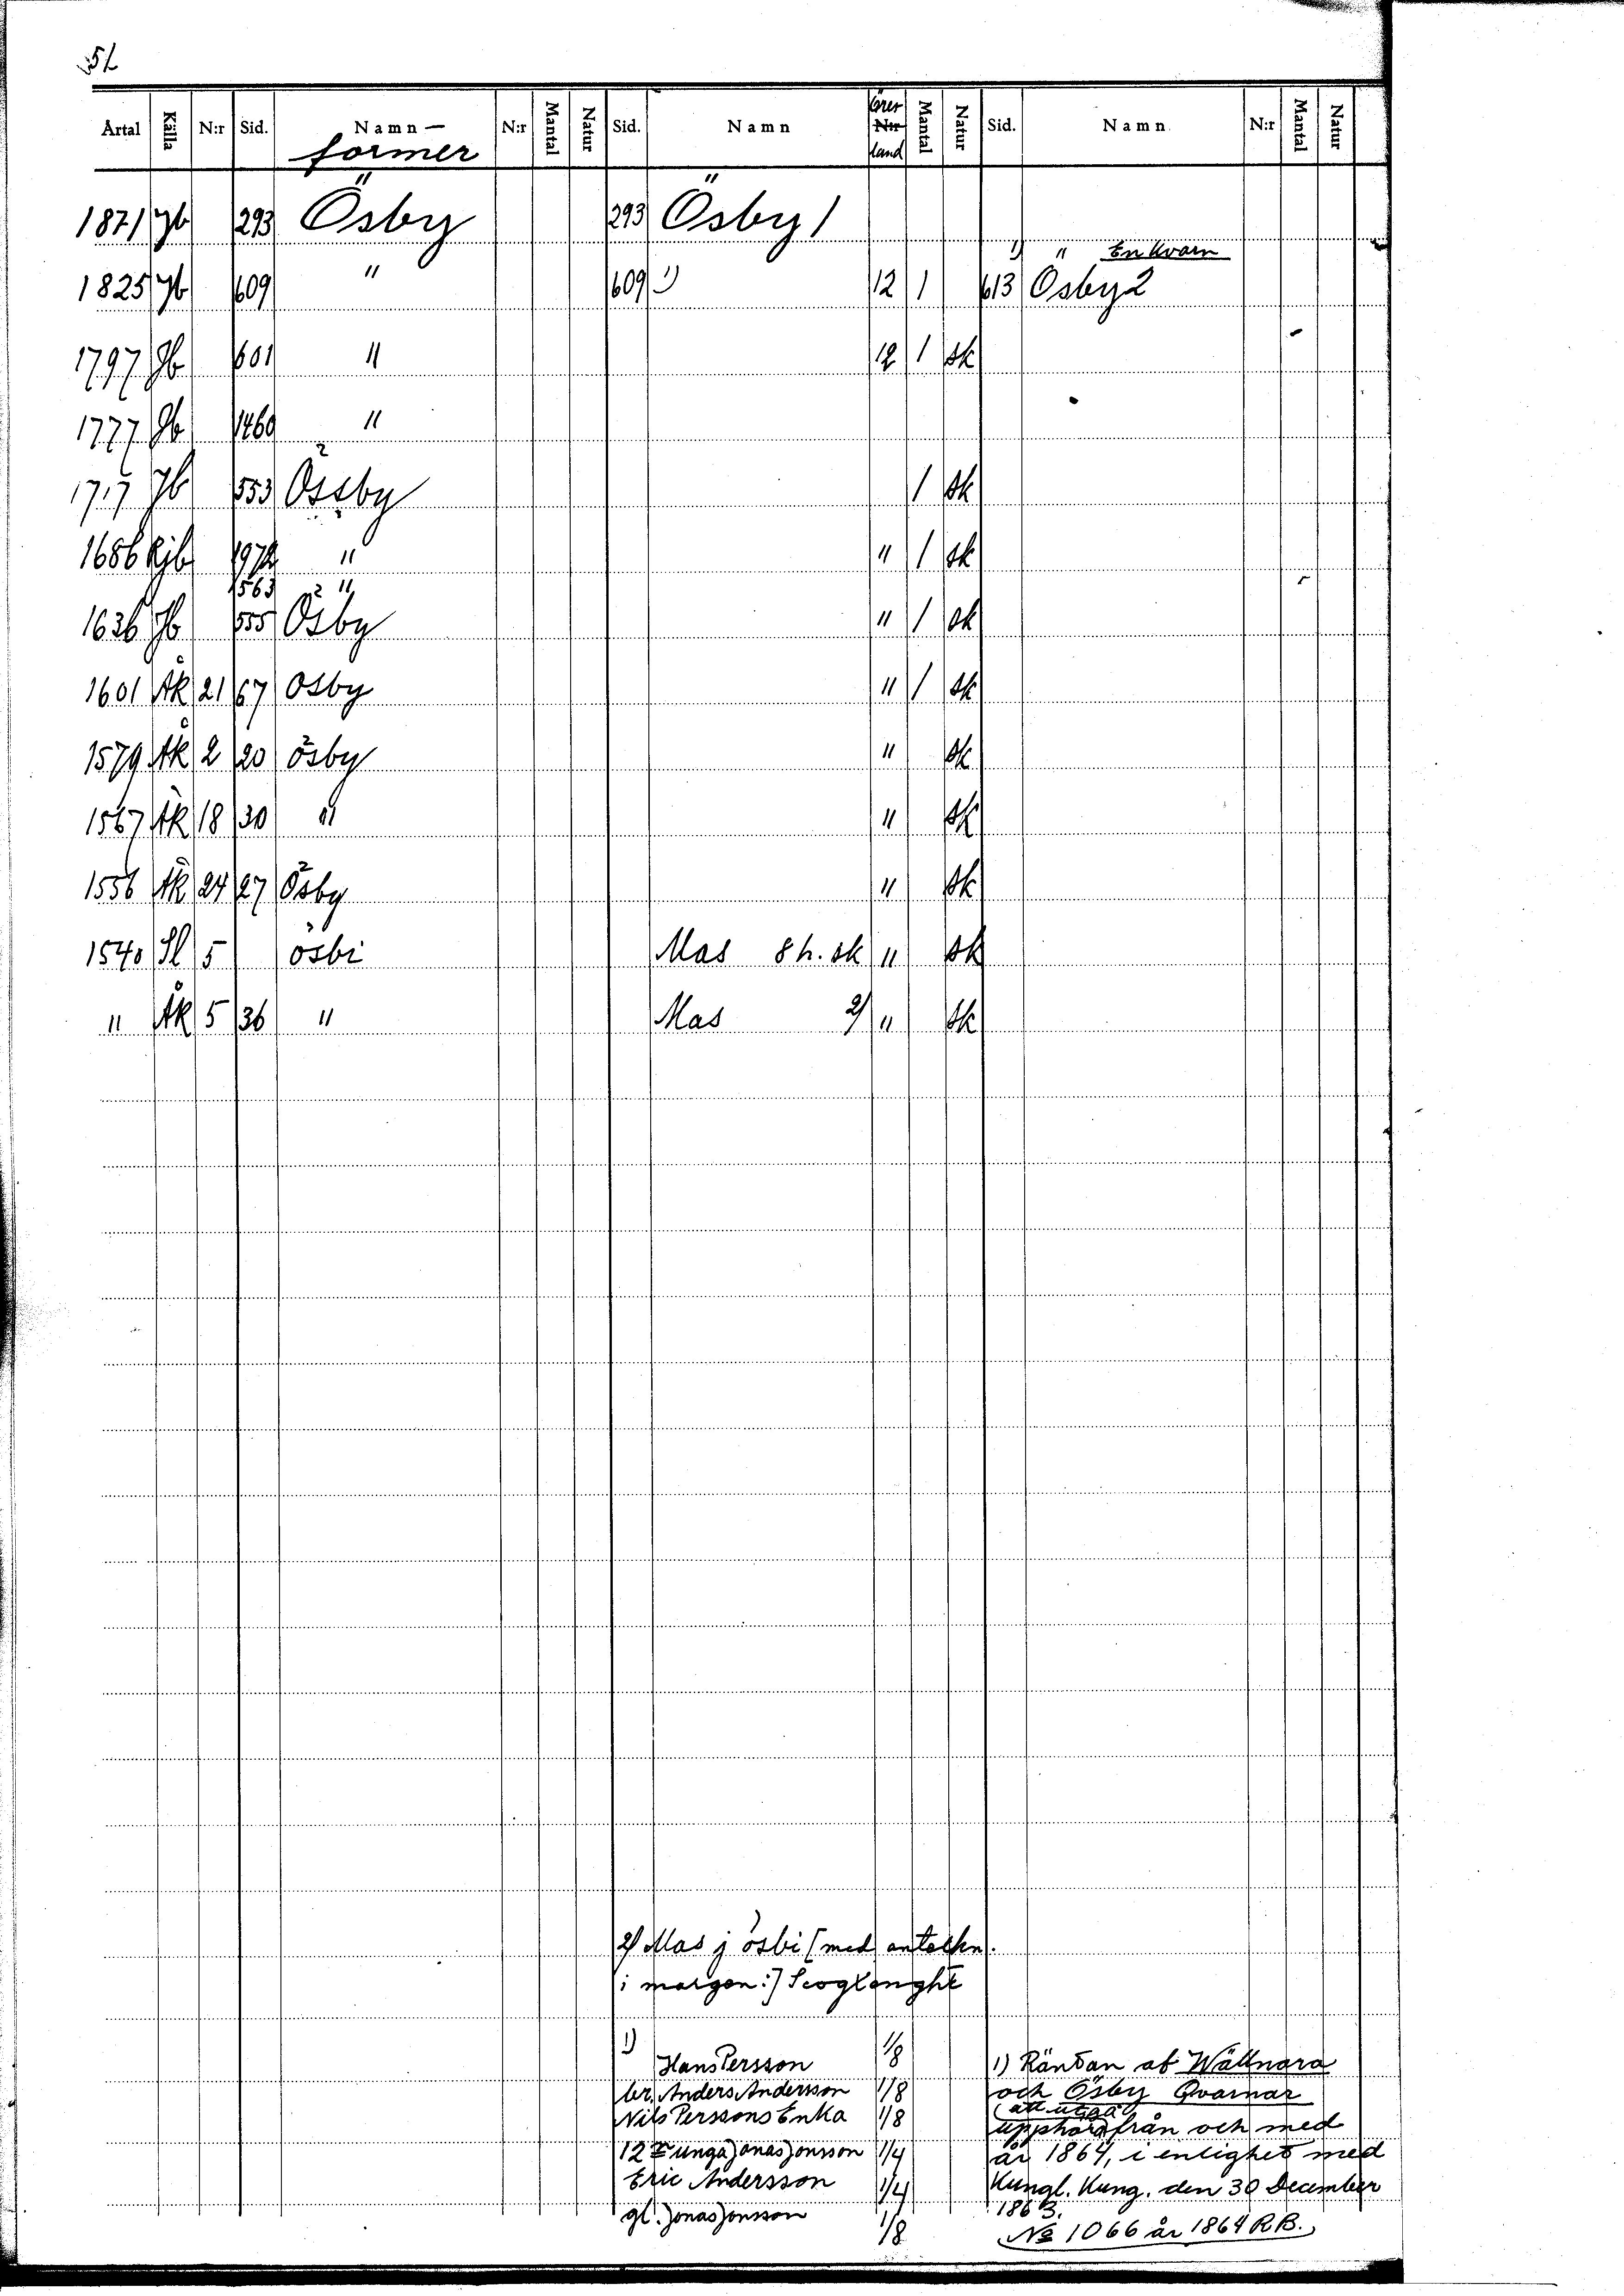 51
Årtal Källa N:r Sid. Namn— N:r Mantal Natur Sid. Namn Öres N:r land Mantal Natur Sid. Namn N:r Mantal Natur
former
1871 Jb 293 Ösby 293 Ösby 1
1) " En kvarn
1825 Jb 609 " 609 1) 12 1 613 Ösby 2
1797 Jb 601 " 12 1 sk
1777 Jb 1460 "
1717 Jb 553 Össby 1 sk
1686 Kjb 1974 " " 1 sk
1563 "
1636 Jb 555 Ösby " 1 sk
1601 ÅK 21 67 Osby " 1 sk
1579 ÅK 2 20 ösby " sk
1567 ÅK 18 30 " " sk
1556 ÅK 24 27 Ösby " sk
1540 Sl 5 ösbi Mas 8 h. sk " sk
" ÅK 5 36 " Mas 2) " sk
2) Mas j ösbi (med anteckn.
i margen:) Scoglenght
1)
Hans Persson 1/8
br. Anders Andersson 1/8
Nils Perssons Enka 1/8
12 Z unga Jonas Jonsson 1/4
Eric Andersson 1/4
gl. Jonas Jonsson 1/8
1) Räntan af Wällnora
och Ösby Qvarnar
(att utgå)
upphörd från och med
år 1864, i enlighet med
Kungl. Kung. den 30 December
1863.
No 1066 år 1864 RB.